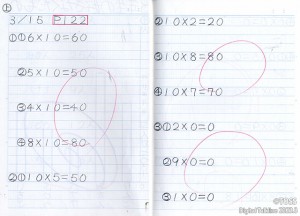 ①
3/15 P122
①①6×10=60
②5×10=50
③4×10=40
④8×10=80
②①10×5=50
②10×2=20
③10×8=80
④10×7=70
③①2×0=0
②9×0=0
③1×0=0
©TOSS
Digital Talkline